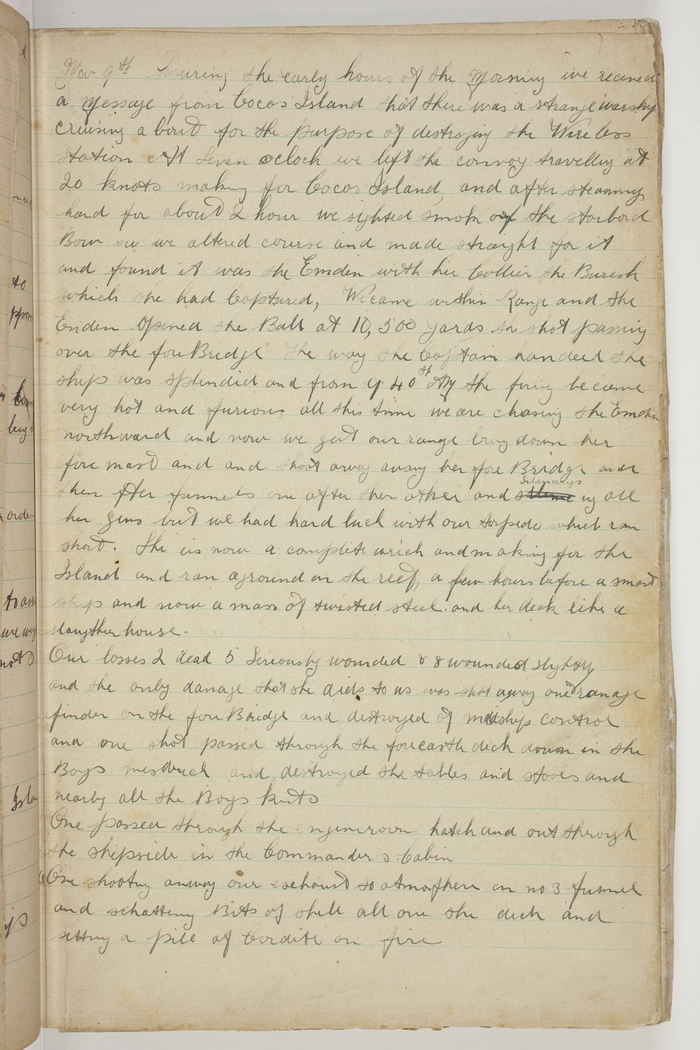 Nov 9th During the early hours of the Morning we received
a Message from Cocos Island that there was a strange warship
cruising about for the purpose of destroying the Wireless
Station At seven oclock we left the convoy travelling at
20 knots making for Cocos Island, and after steaming
hard for about 2 hour we sighted smoke of the starbord
Bow so we altered course and made straight for it
and found it was the Emden with her Collier the Buresk
which she had Captured, We came within Range and the
Emden Opened the Ball at 10,500 yards the shot passing
over the foreBridge The way the Captain handled the
ship was splendid and from 9.40 the firing became
very hot and furious all this time we are chasing the Emden
northward and now we got our range bring down her
fore mast and and shoot away away her fore Bridge and
then Her funnels on after ther other and silencing all
her guns but we had hard luck with our torpedo which ran
short. She is now a complete wrech and making for the
Island and ran aground on the reef, a few hours before a smart
ship and now a mass of twisted steel. and her deck like a
slaughter house.
Our losses 2 dead 5 Seriously wounded & 8 wounded slightly
and the only damage that she did to us was shot away one range
finder on the fore Bridge and destroyed of midship control
and one shot passed through the forecastle deck down in the
Boys mesdeck and destroyed the tables and stools and
nearby all the Boys kits
One passed through the engineroom hatch and out through
the shipside in the Commander's Cabin
One shooting away our exhaust to atmosphere on no 3 funnel
and schattering Bits of shell all one the deck and
setting a pile of Cordite on fire